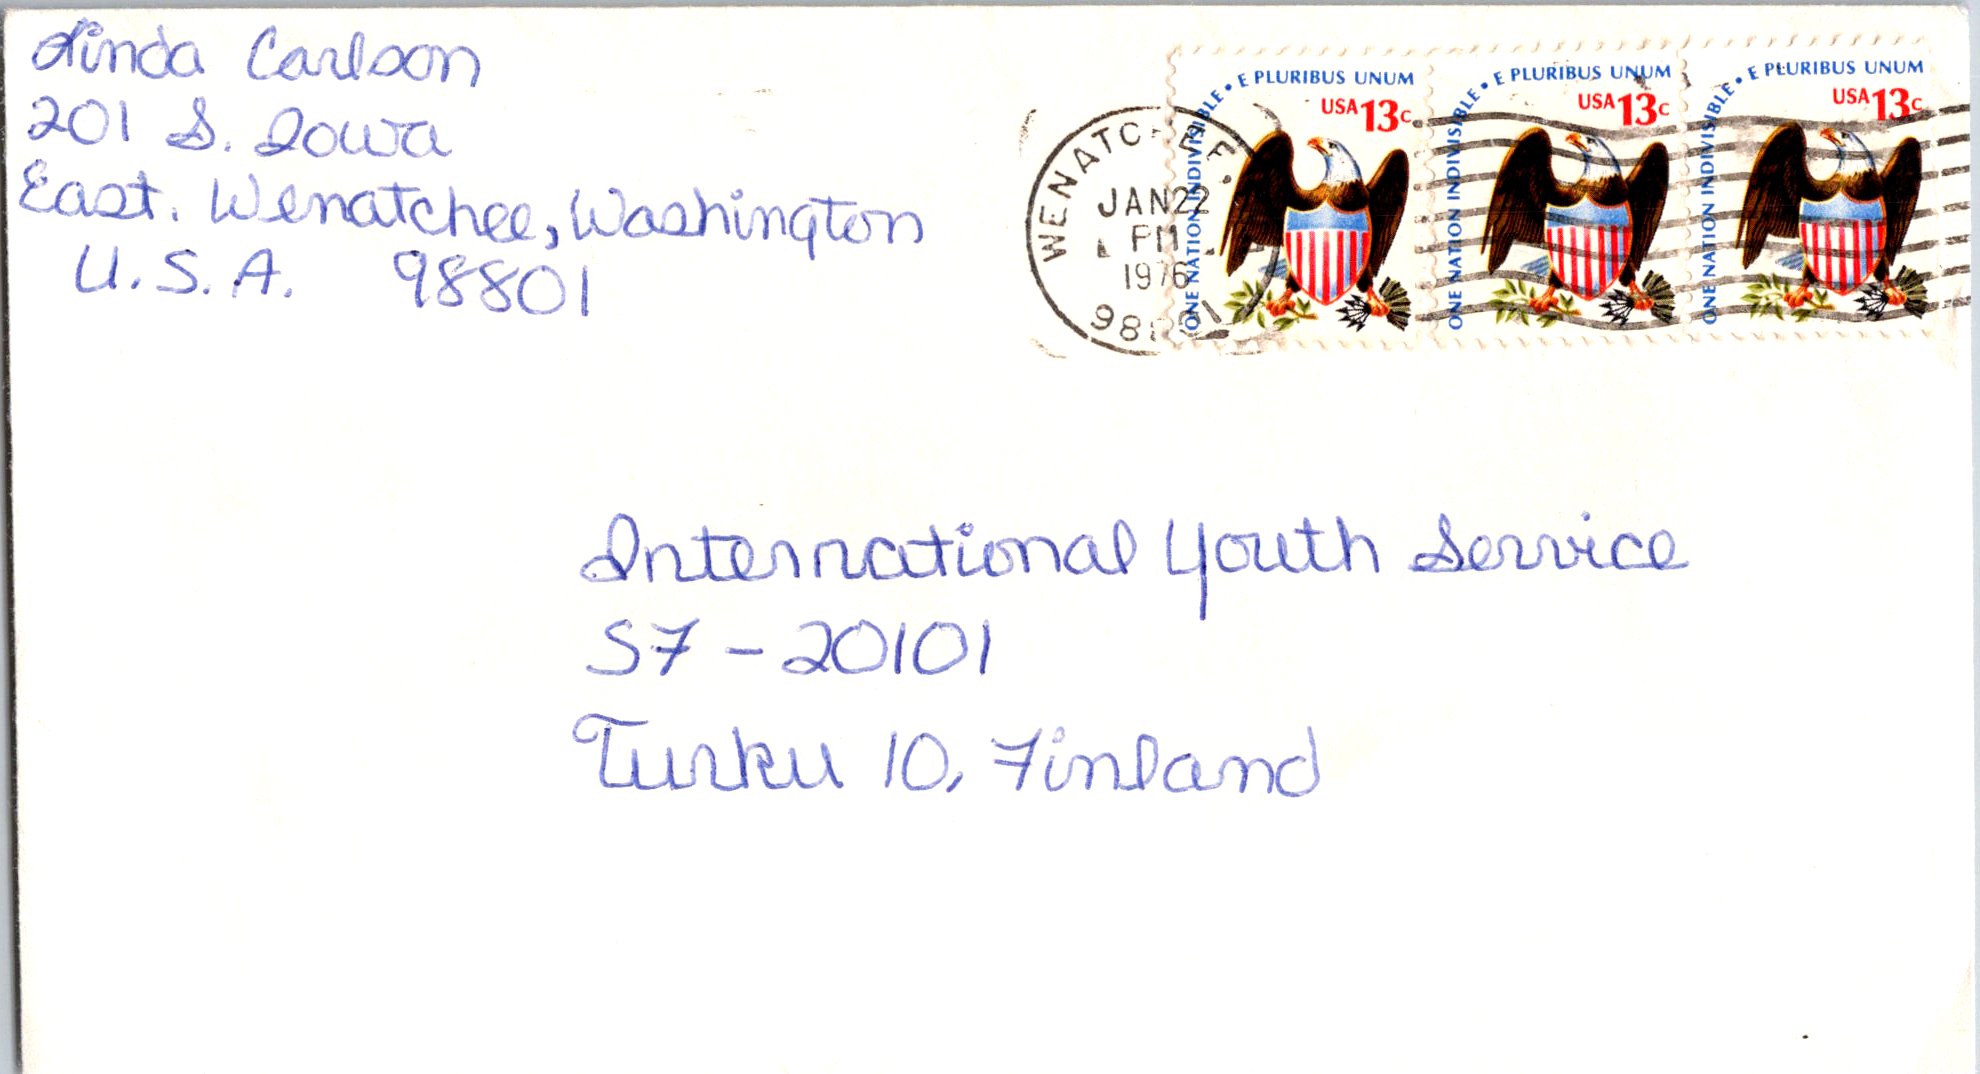 Linda Carlson
201 S. Iowa
East. Wenatchee, Washington
U.S.A. 98801
WENATC
JAN 22
PM
1976
ONE NATION INDIVISIBLE • E PLURIBUS UNUM
USA 13c
ONE NATION INDIVISIBLE • E PLURIBUS UNUM
USA 13c
ONE NATION INDIVISIBLE • E PLURIBUS UNUM
USA 13c
International Youth Service
S7 - 20101
Turku 10, Finland